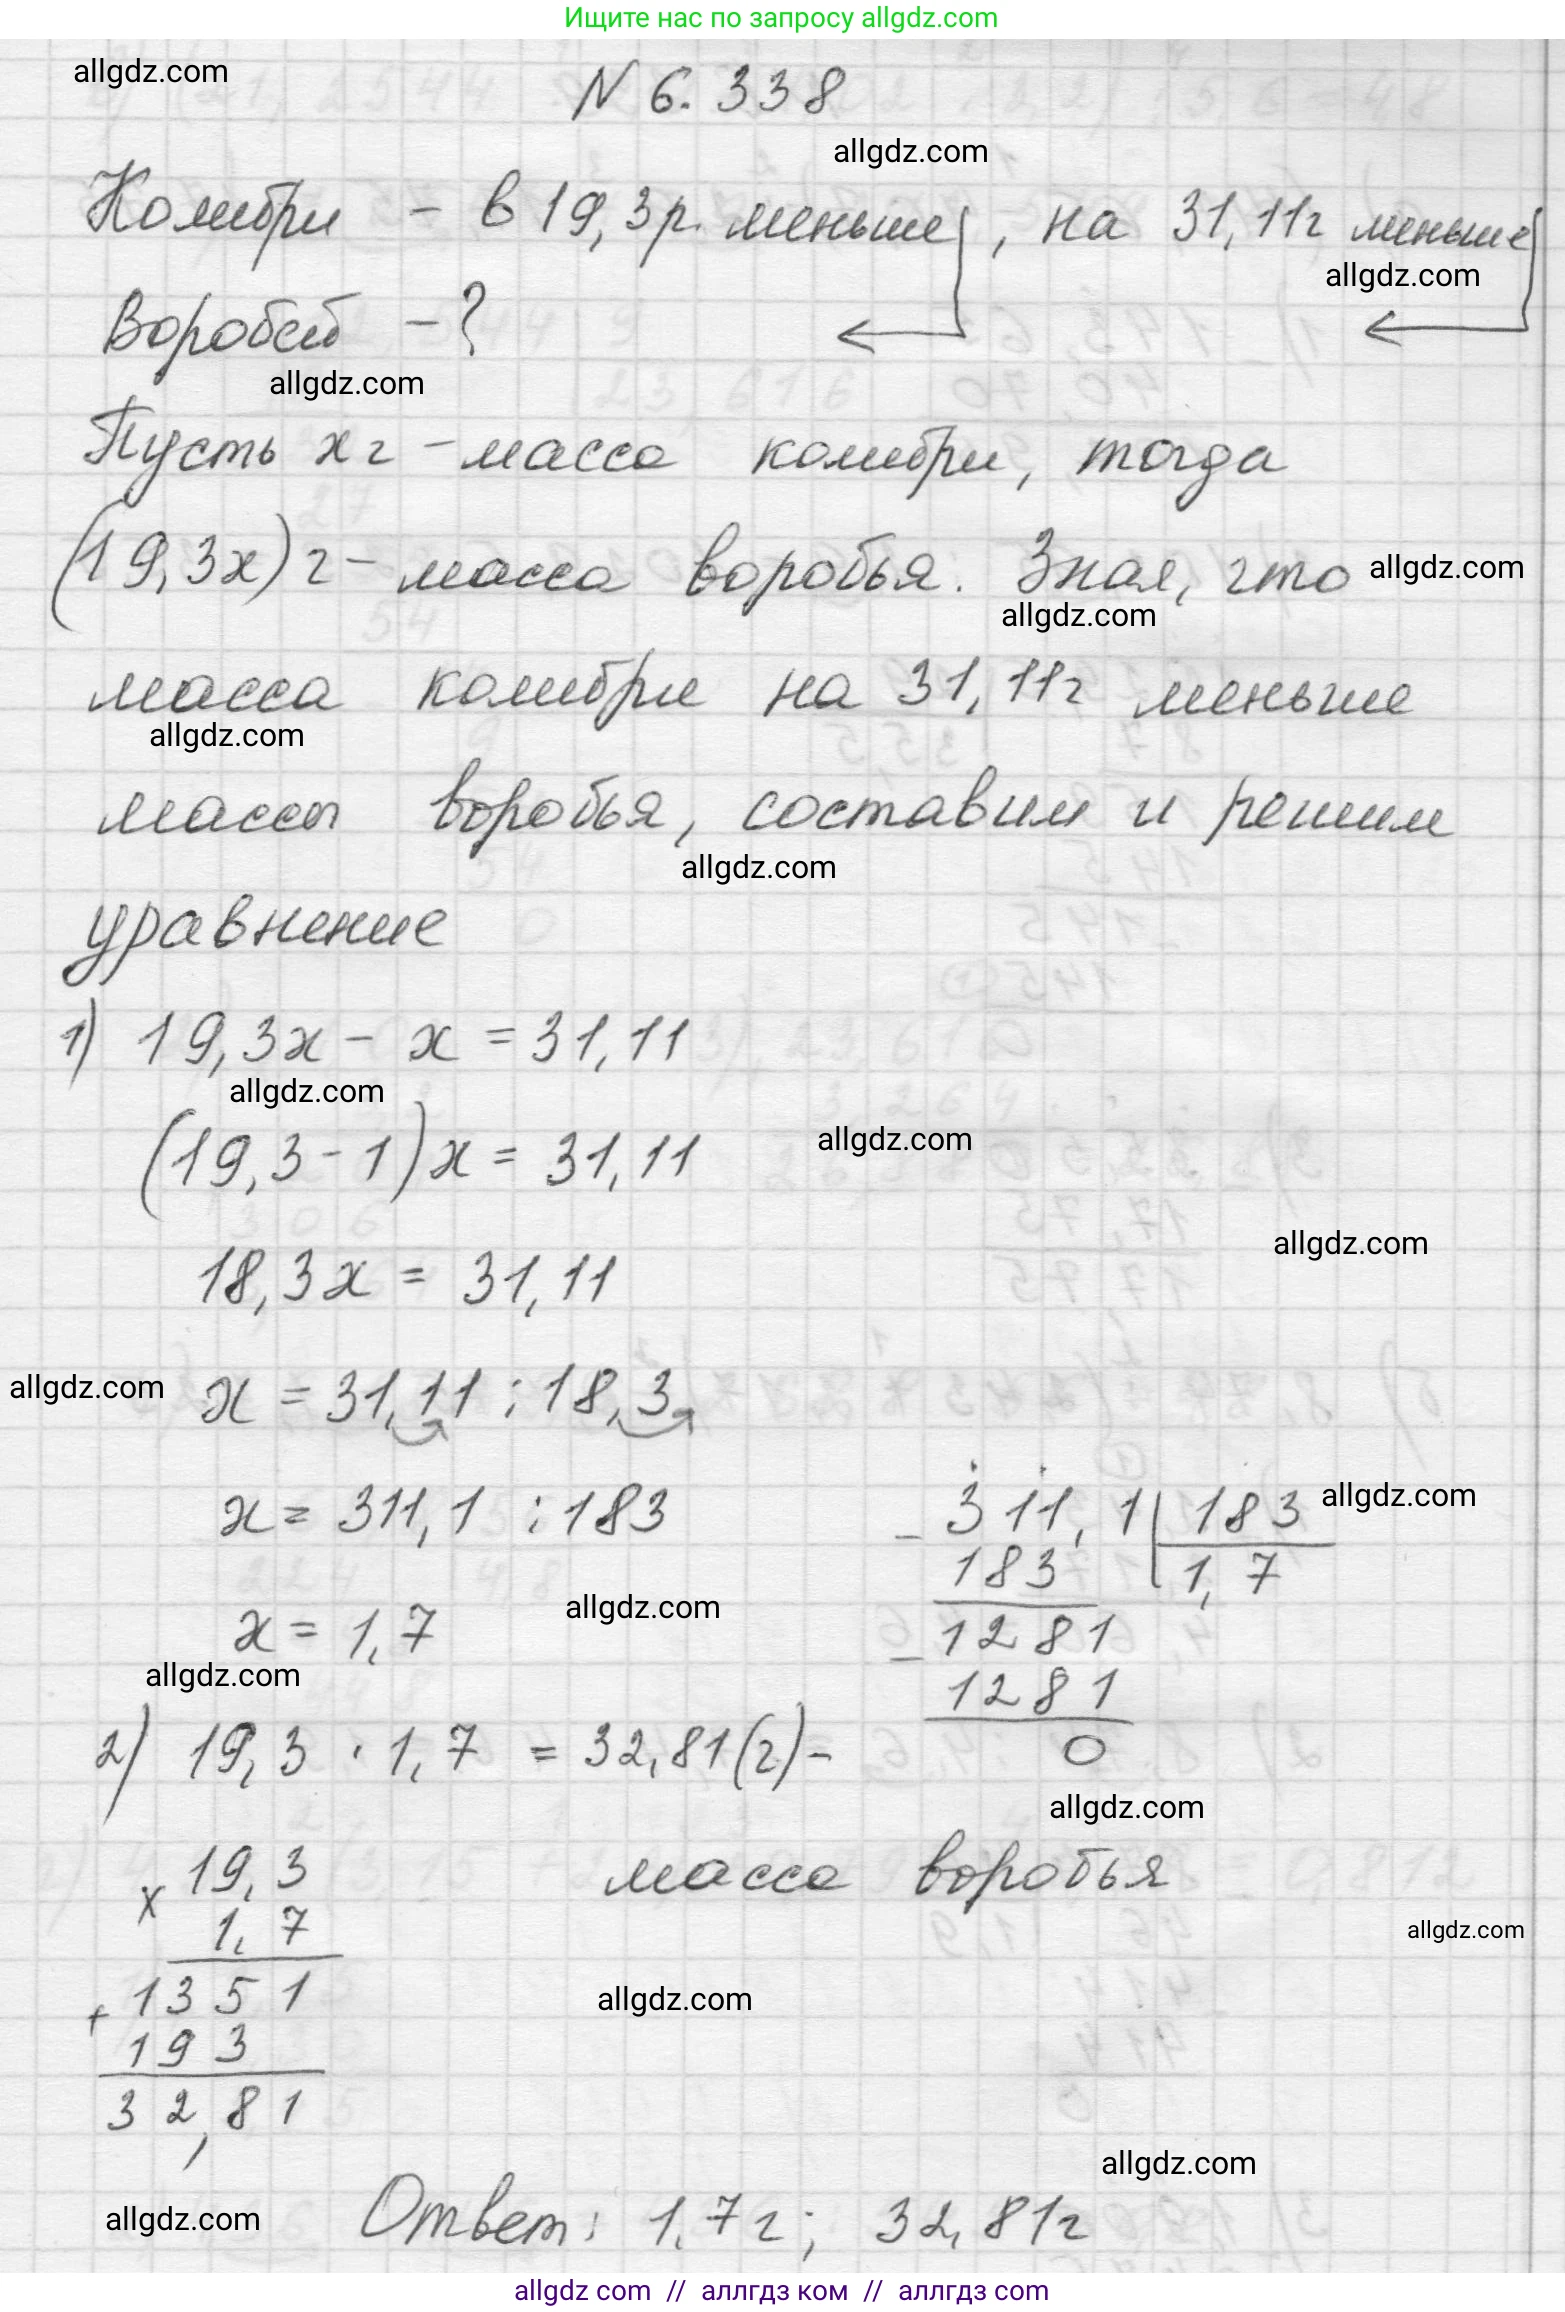 Ищите нас по запросу allgdz.com
allgdz.com
N 6.338
allgdz.com
Колибри - в 19,3 р. меньше, на 31,11г меньше
allgdz.com
Воробей - ?
allgdz.com
Пусть x г - масса колибри, тогда
(19,3x) г - масса воробья. Зная, что
allgdz.com
allgdz.com
масса колибри на 31,11г меньше
allgdz.com
массы воробья, составим и решим
allgdz.com
уравнение
1) 19,3x - x = 31,11
allgdz.com
(19,3 - 1)x = 31,11
allgdz.com
allgdz.com
18,3x = 31,11
allgdz.com
x = 31,11 : 18,3
x = 311,1 : 183
- 311,1 | 183
allgdz.com
183 1,7
x = 1,7
allgdz.com
- 1281
allgdz.com
1281
0
2) 19,3 · 1,7 = 32,81 (г) -
allgdz.com
масса воробья
x 19,3
1,7
allgdz.com
+ 1351
allgdz.com
193
32,81
allgdz.com
allgdz.com
Ответ: 1,7г; 32,81г
allgdz.com // аллгдз ком // аллгдз com